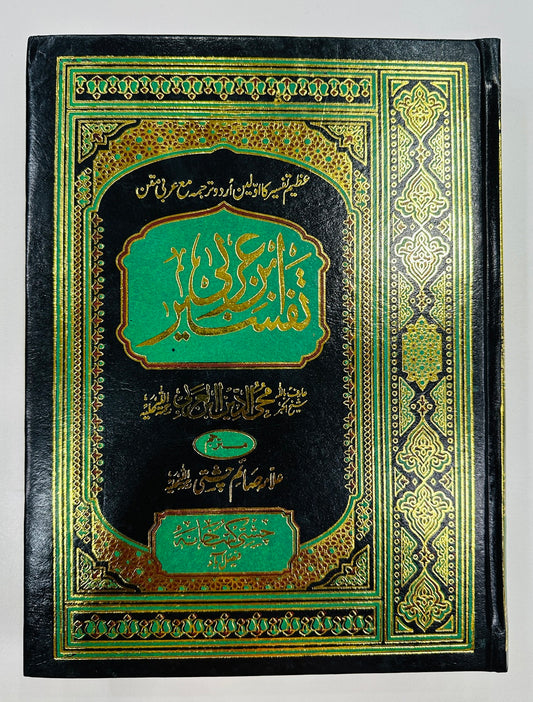 عظیم تفسیر کا اوّلین اُردو ترجمہ مع عربی متن
تفسیر ابن عربی
محی الدین ابن عربی رحمۃ اللہ علیہ
مترجم
علامہ صائم چشتی رحمۃ اللہ علیہ
چشتی کتب خانہ
فیصل آباد